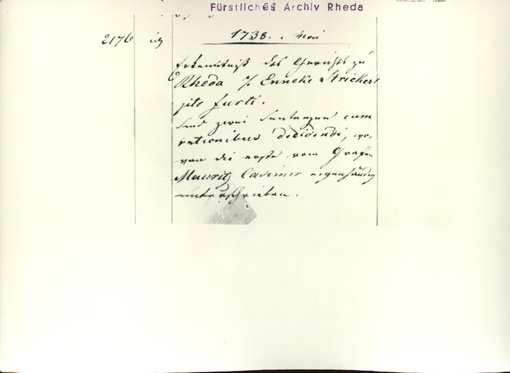 Fürstliches Archiv Rheda
2176
1738. Mai
Erkenntniß des Gerichts zu
Rheda Enneke Strickers
pto furti.
Sind zwei Sentenzen cum
rationibus decidendi, wo-
von die erste vom Grafen
Mauritz Casimir eigenhändig
unterschrieben.